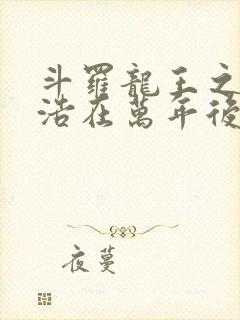 斗羅龍王之
浩在萬年後
夜蔓